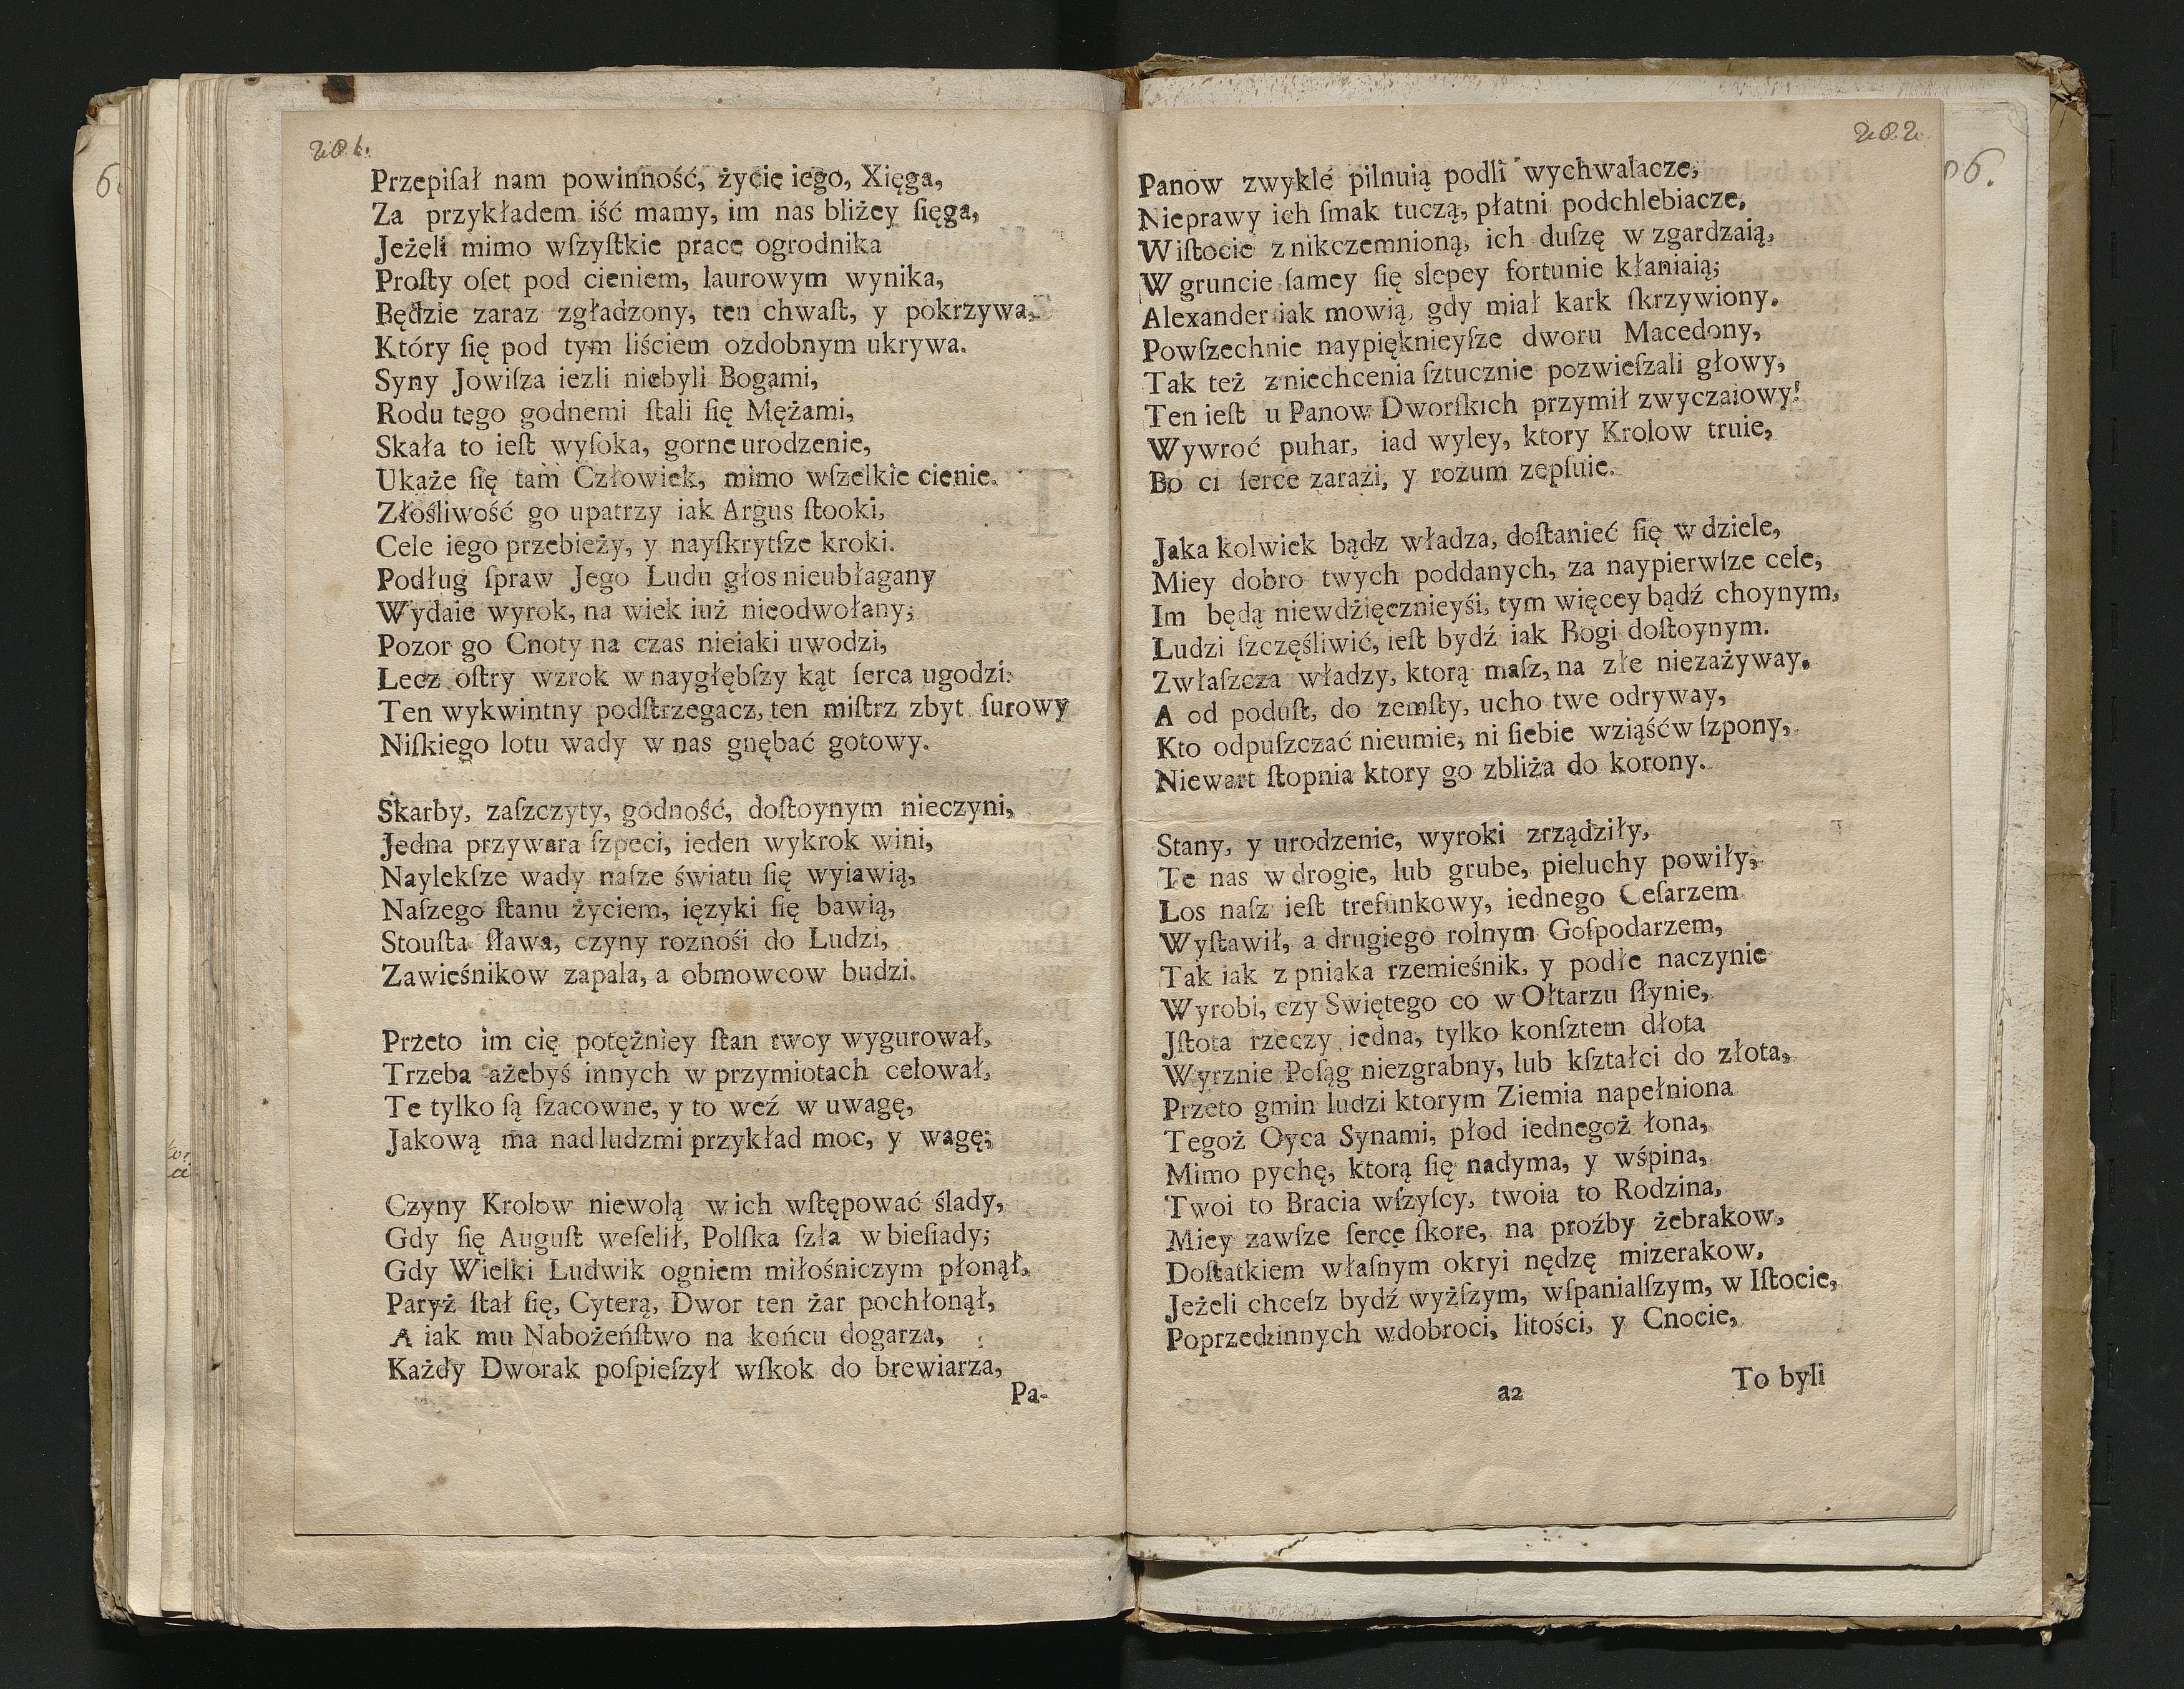 201.
Przepiſał nam powinność, życie iego, Xięga,
Za przykładem iść mamy, im nas bliżey ſięga,
Jeżeli mimo wſzyſtkie prace ogrodnika
Proſty oſet pod cieniem, laurowym wynika,
Będzie zaraz zgładzony, ten chwaſt, y pokrzywa,
Który ſię pod tym liściem ozdobnym ukrywa.
Syny Jowiſza iezli niebyli Bogami,
Rodu tego godnemi ſtali ſię Mężami,
Skała to ieſt wyſoka, gorne urodzenie,
Ukaże ſię tam Człowiek, mimo wſzelkie cienie.
Złośliwość go upatrzy iak Argus ſtooki,
Cele iego przebieży, y nayſkrytſze kroki.
Podług ſpraw Jego Ludu głos nieubłagany
Wydaie wyrok, na wiek iuż nieodwołany;
Pozor go Cnoty na czas nieiaki uwodzi,
Lecz oſtry wzrok w naygłębſzy kąt ſerca ugodzi.
Ten wykwintny podſtrzegacz, ten miſtrz zbyt ſurowy
Niſkiego lotu wady w nas gnębać gotowy.
Skarby, zaſzczyty, godność, doſtoynym nieczyni,
Jedna przywara ſzpeci, ieden wykrok wini,
Naylekſze wady naſze światu ſię wyiawią,
Naſzego ſtanu życiem, ięzyki ſię bawią,
Stouſta ſława, czyny roznośi do Ludzi,
Zawieśnikow zapala, a obmowcow budzi.
Przeto im cię potężniey ſtan twoy wygurował,
Trzeba ażebyś innych w przymiotach celował,
Te tylko ſą ſzacowne, y to weź w uwagę,
Jakową ma nad ludzmi przykład moc, y wagę;
Czyny Krolow niewolą w ich wſtępować ślady,
Gdy ſię Auguſt weſelił, Polſka ſzła w bieſiady;
Gdy Wielki Ludwik ogniem miłośniczym płonął,
Paryż ſtał ſię, Cyterą, Dwor ten żar pochłonął,
A iak mu Nabożeńſtwo na końcu dogarza,
Każdy Dworak poſpieſzył wſkok do brewiarza,
Pa-
202.
06.
Panow zwykle pilnuią podli wychwalacze,
Nieprawy ich ſmak tuczą, płatni podchlebiacze.
W iſtocie znikczemnioną, ich duſzę w zgardzaią,
W gruncie ſamey ſię slepey fortunie kłaniaią;
Alexander iak mowią, gdy miał kark ſkrzywiony.
Powſzechnie naypięknieyſze dworu Macedony,
Tak też z niechcenia ſztucznie pozwieſzali głowy,
Ten ieſt u Panow Dworſkich przymił zwyczaiowy!
Wywroć puhar, iad wyley, ktory Krolow truie,
Bo ci ſerce zarazi, y rozum zepſuie.
Jaka kolwiek bądz władza, doſtanieć ſię w dziele,
Miey dobro twych poddanych, za naypierwſze cele,
Im będą niewdźięcznieyśi, tym więcey bądź choynym,
Ludzi ſzczęśliwić, ieſt bydź iak Bogi doſtoynym.
Zwłaſzcza władzy, ktorą maſz, na złe niezażyway.
A od poduſt, do zemſty, ucho twe odryway,
Kto odpuſzczać nieumie, ni ſiebie wziąść w ſzpony,
Niewart ſtopnia ktory go zbliża do korony.
Stany, y urodzenie, wyroki zrządziły,
Te nas w drogie, lub grube, pieluchy powiły,
Los naſz ieſt trefunkowy, iednego Ceſarzem
Wyſtawił, a drugiego rolnym Goſpodarzem,
Tak iak z pniaka rzemieśnik, y podłe naczynie
Wyrobi, czy Swiętego co w Ołtarzu ſłynie,
Jſtota rzeczy iedna, tylko konſztem dłota
Wyrznie Poſąg niezgrabny, lub kſztałci do złota,
Przeto gmin ludzi ktorym Ziemia napełniona
Tegoż Oyca Synami, płod iednegoż łona,
Mimo pychę, ktorą ſię nadyma, y wśpina,
Twoi to Bracia wſzyſcy, twoia to Rodzina,
Miey zawſze ſerce ſkore, na proźby żebrakow,
Doſtatkiem właſnym okryi nędzę mizerakow.
Jeżeli chceſz bydź wyżſzym, wſpanialſzym, w Iſtocie,
Poprzedzinnych w dobroci, litości, y Cnocie,
a2
To byli